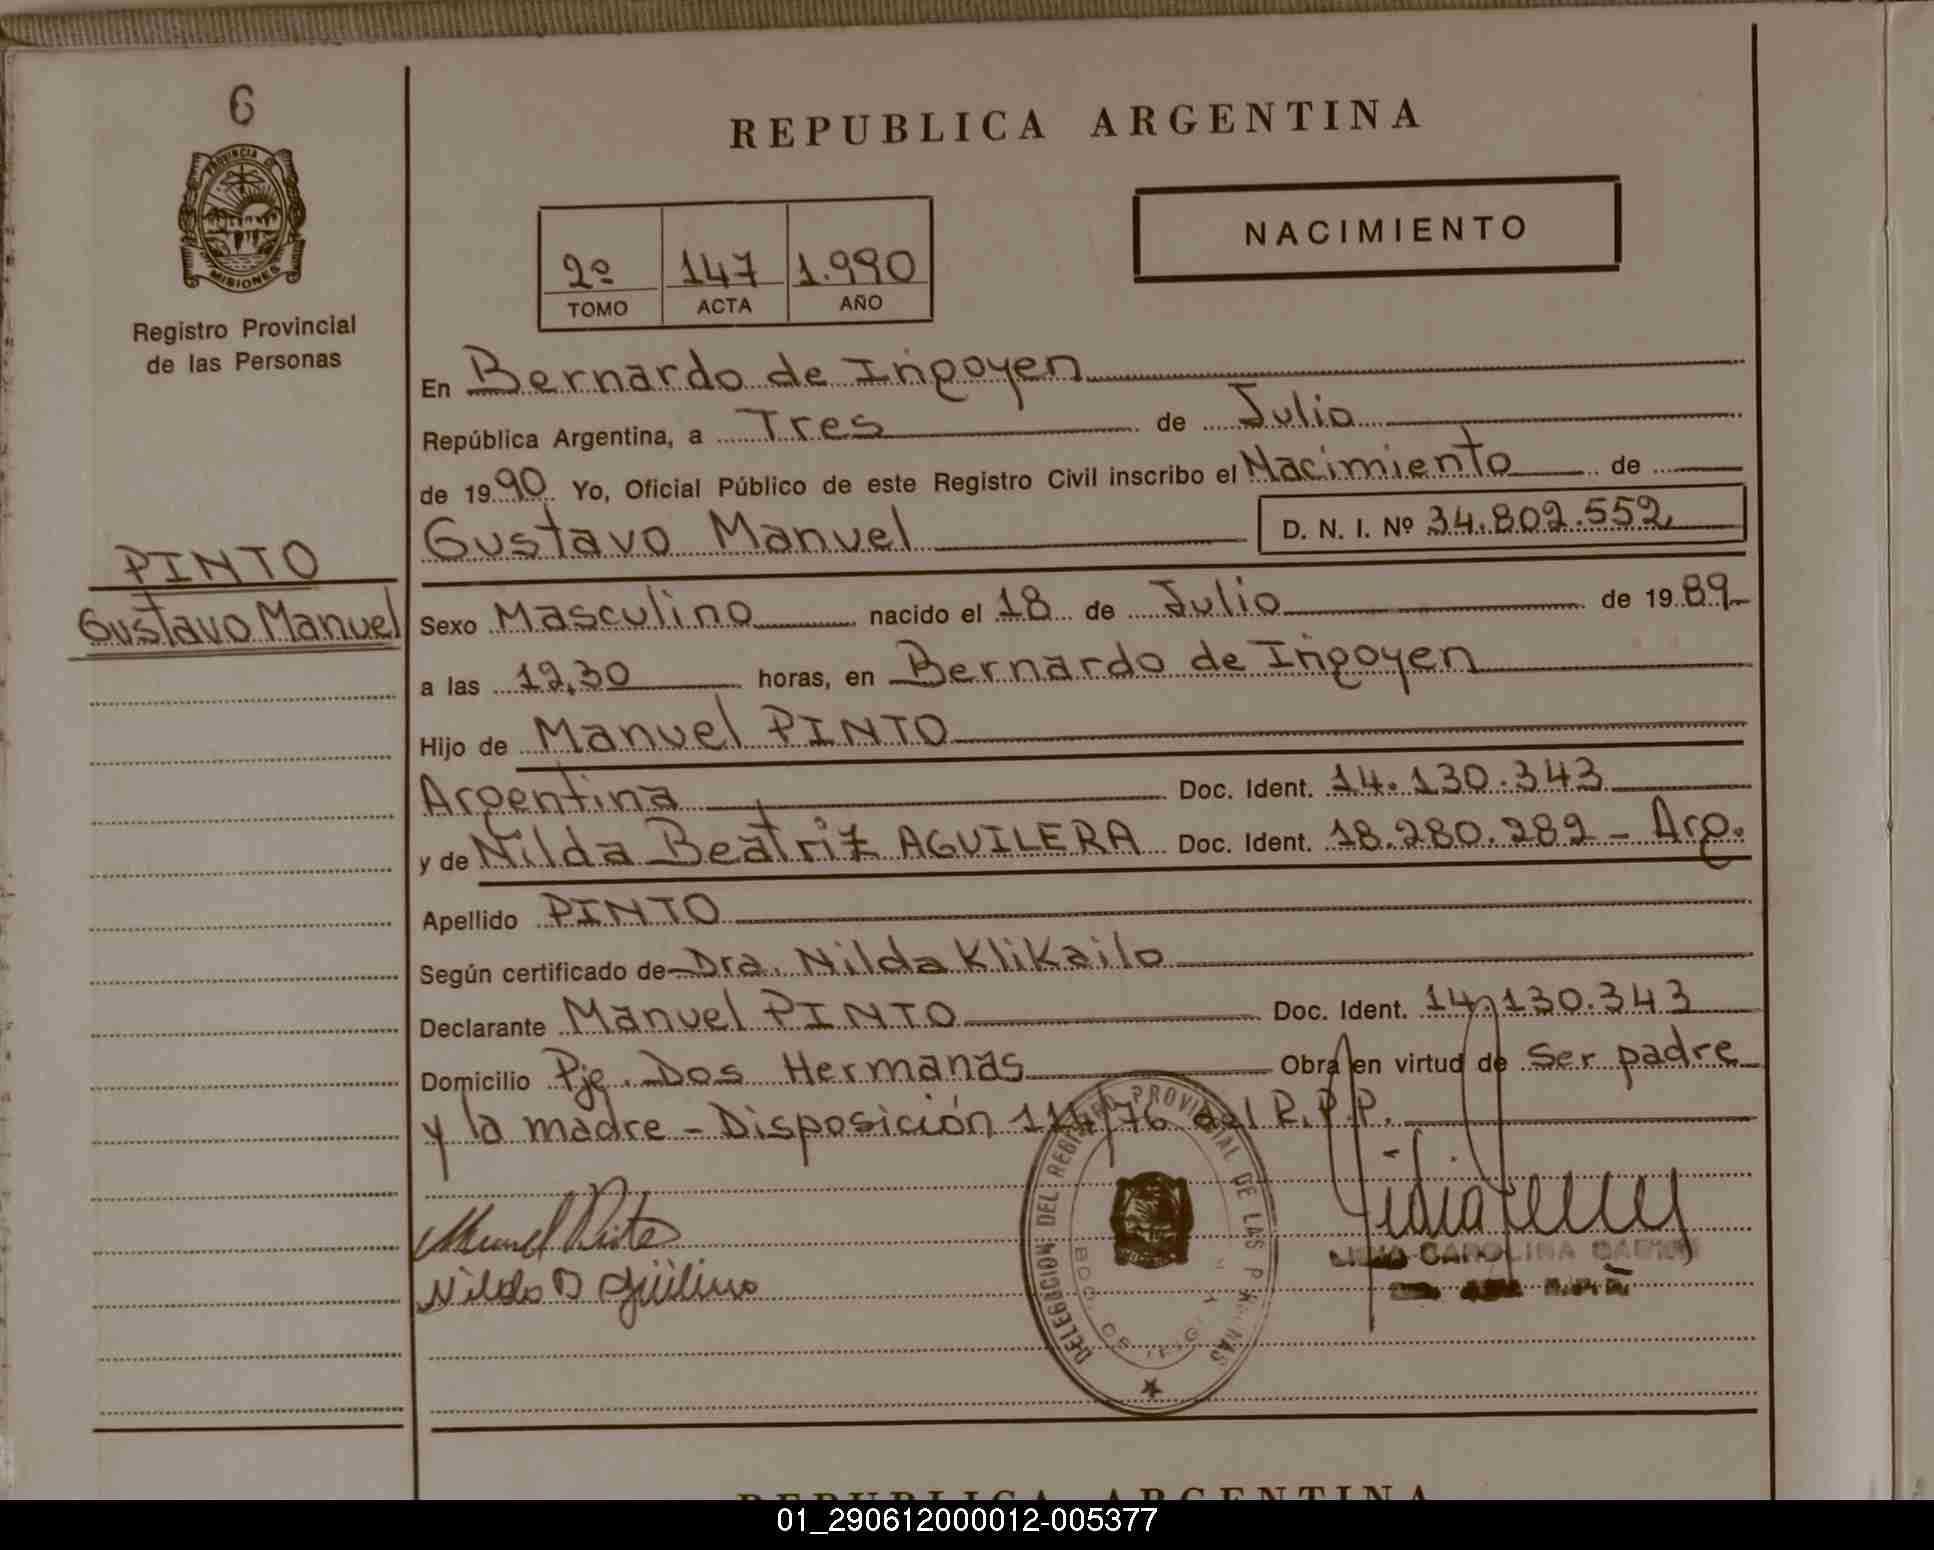 6
PROVINCIA DE
MISIONES
Registro Provincial
de las Personas
PINTO
Gustavo Manuel
REPUBLICA ARGENTINA
NACIMIENTO
2º 147 1.990
TOMO ACTA AÑO
En Bernardo de Irigoyen
República Argentina, a Tres de Julio
de 1990 Yo, Oficial Público de este Registro Civil inscribo el Nacimiento de
Gustavo Manuel D. N. I. Nº 34.802.552
Sexo Masculino nacido el 18 de Julio de 1989
a las 12,30 horas, en Bernardo de Irigoyen
Hijo de Manuel PINTO
Argentina Doc. Ident. 14.130.343
y de Nilda Beatriz AGUILERA Doc. Ident. 18.280.282 - Arg.
Apellido PINTO
Según certificado de Dra. Nilda Klikailo
Declarante Manuel PINTO Doc. Ident. 14.130.343
Domicilio Pje. Dos Hermanas Obra en virtud de Ser padre
y la madre - Disposición 114/76 del R.P.P.
Manuel Pinto
DELEGACION DEL REGISTRO PROVINCIAL DE LAS PERSONAS
CAROLINA
REPUBLICA ARGENTINA
01_290612000012-005377